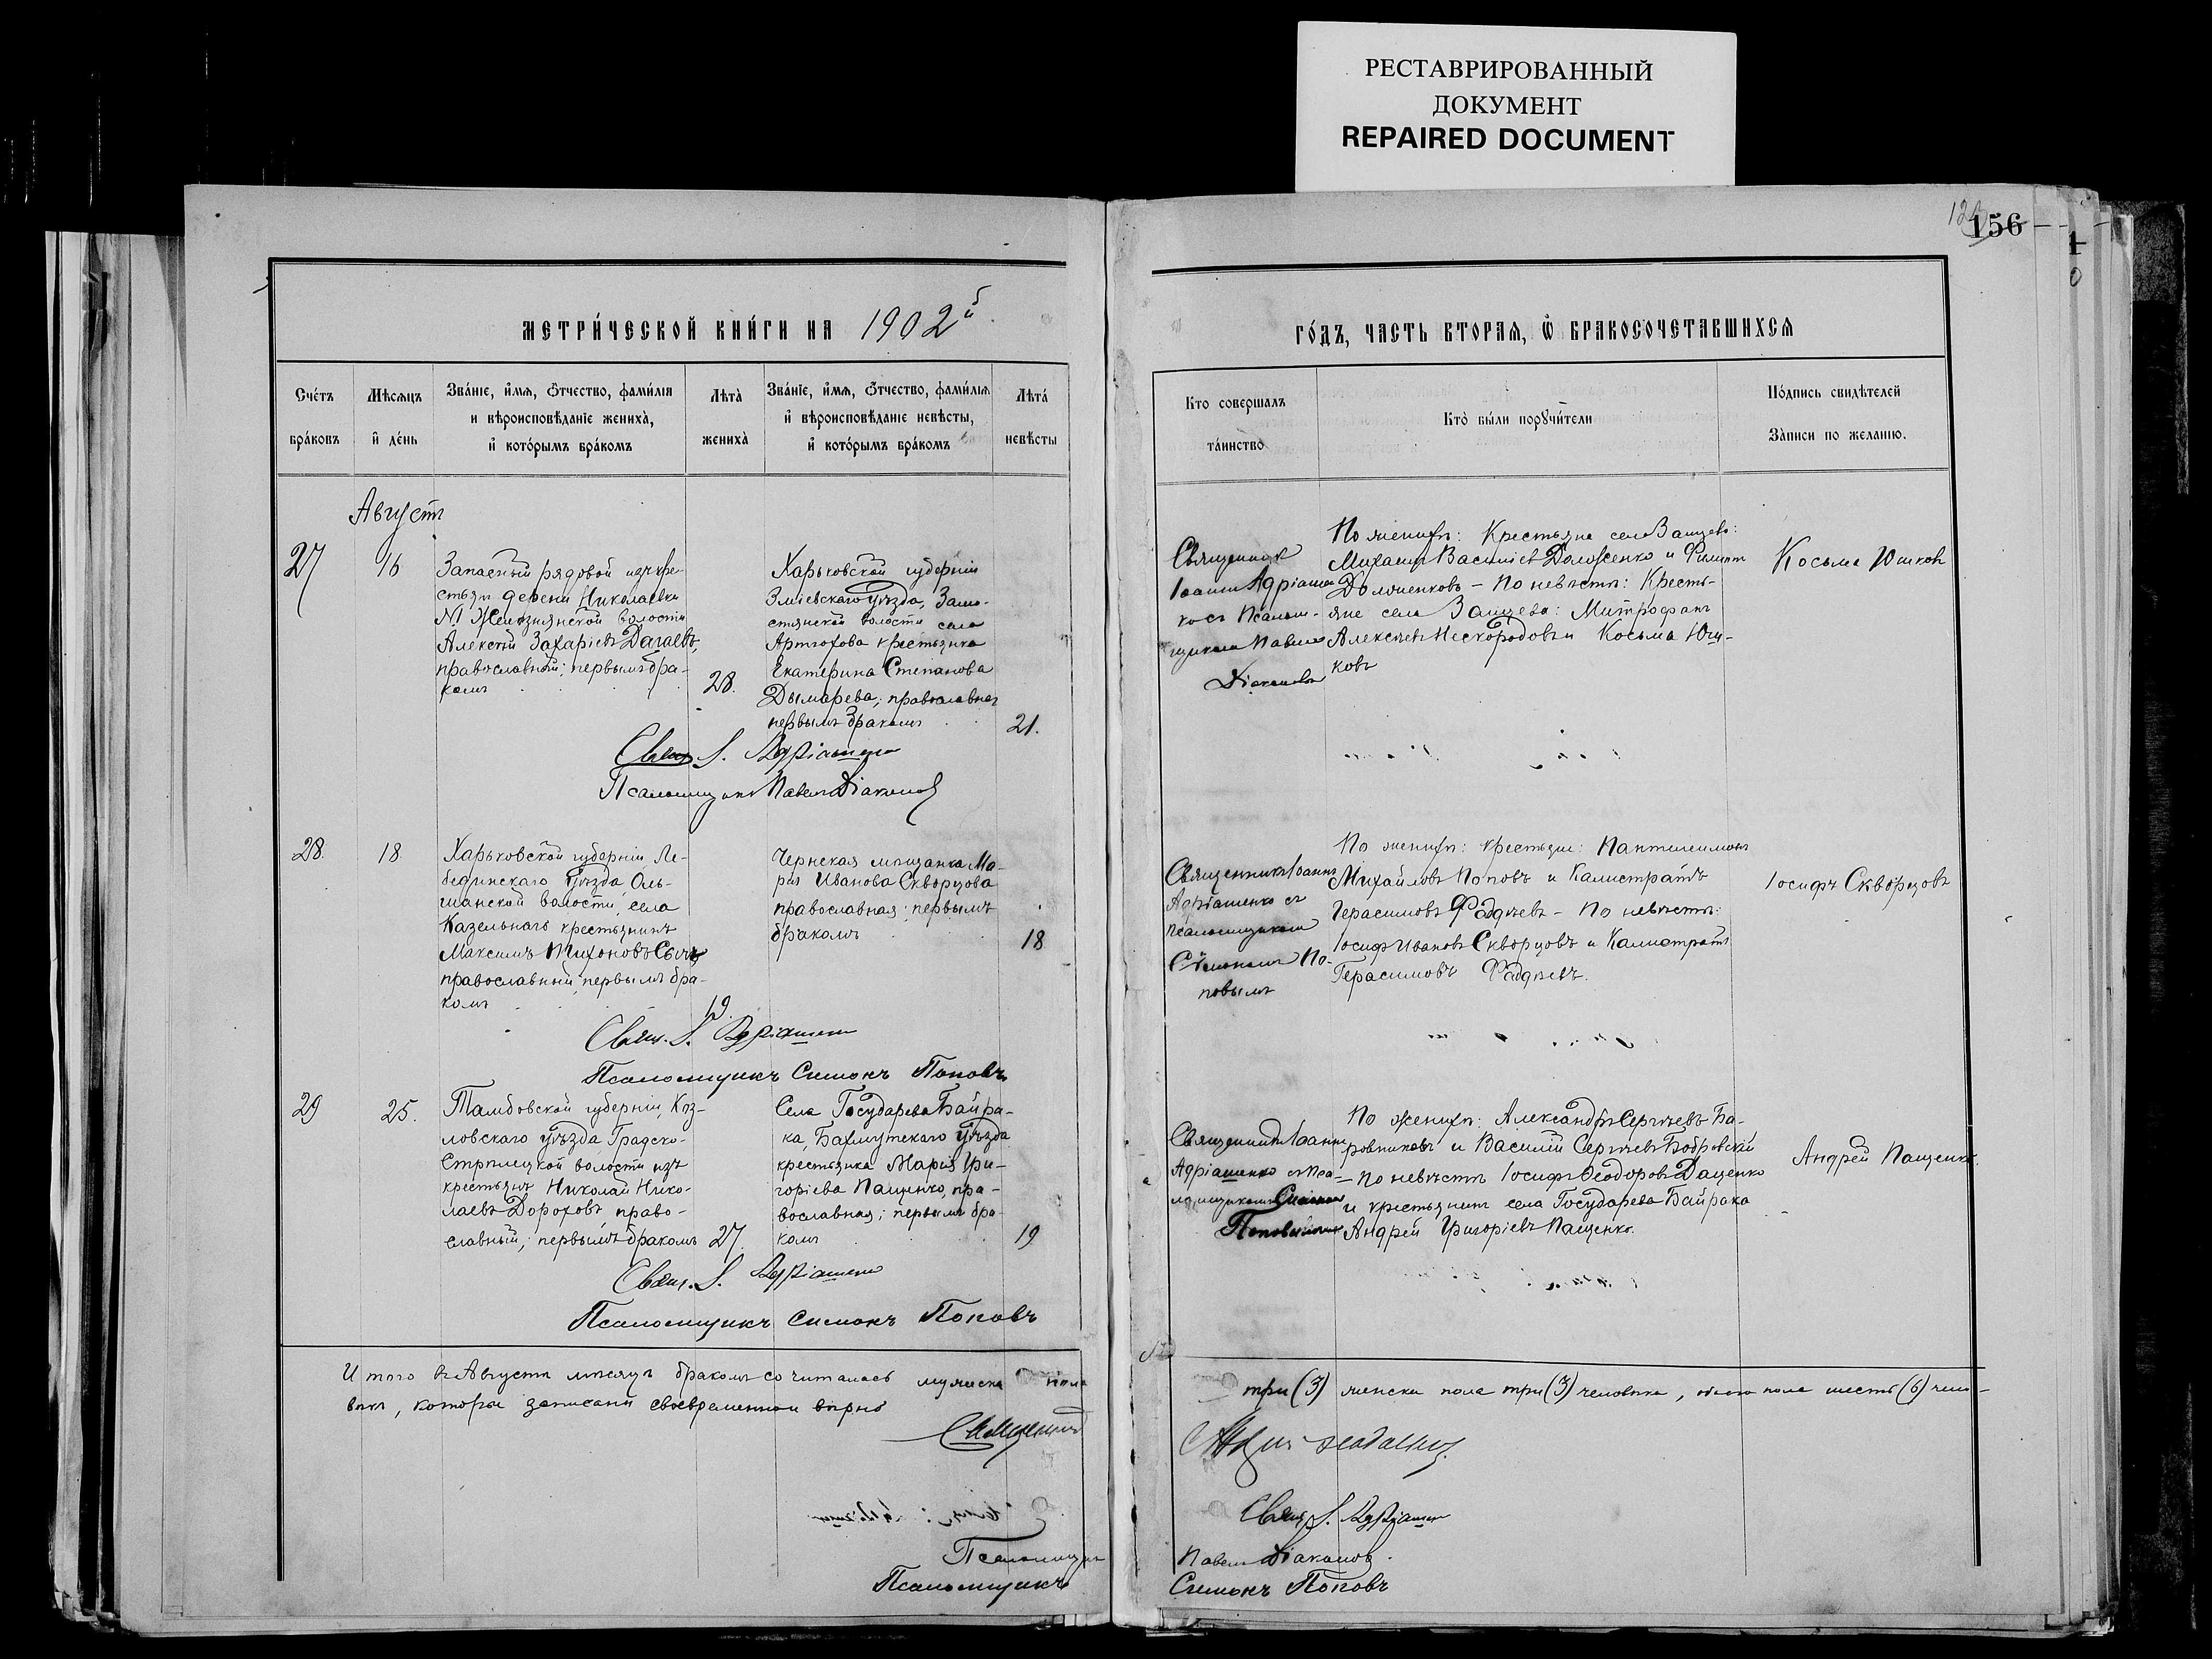 РЕСТАВРИРОВАННЫЙ
ДОКУМЕНТ
REPAIRED DOCUMENT
156
МЕТРИ́ЧЕСКОЙ КНИ́ГИ НА 1902й
ГО́ДЪ, ЧАСТЬ ВТОРАЯ, Ѿ БРАКОСОЧЕТАВШИХСЯ
Сче́тъ
бра́ковъ
Мѣсяцъ
и де́нь
Зва́нїе, и́мя, ѻ́тчество, фами́лїя
и вѣроисповѣданїе жениха̀,
и кото́рымъ бра́комъ
Лѣта̀
жениха̀
Зва́нїе, и́мя, ѻ́тчество, фами́лїя
и вѣроисповѣданїе невѣсты,
и кото́рымъ бра́комъ
Лѣта́
невѣсты
Кто совершалъ
та́инство
Кто̀ бы́ли порꙋчи́тели
По́дпись свидѣтелей
За̀писи по желанію.
Августъ
27
16
Запасный рядовой изъ кре-
стьян деревни Николаевки
№1 Железнянской волости
Алексѣй Захаріевъ Дагаевъ,
православный; первымъ бра-
комъ
28.
Харьковской губерніи
Зміевскаго уѣзда, Замо-
стянской волости села
Артюхова крестьянка
Екатерина Степанова
Дымарева, православная
первымъ бракомъ
21.
Свящ. І. Адріашенко
Псаломщикъ Павелъ Діаконов
Священник
Іоаннъ Адріашен
ко съ Псалом-
щикомъ Павломъ
Діаконовым
По женихѣ: Крестьяне села Зайцева:
Михаилъ Василіевъ Долженко и Филиппъ
Долженковъ – По невѣстѣ: Кресть-
яне села Зайцева: Митрофанъ
Алексѣевъ Нескородовъ и Косьма Юш-
ковъ
Косьма Юшковъ
28.
18
Харьковской губерніи Ле-
бединскаго уѣзда, Оль-
шанской волости, села
Казельнаго крестьянинъ
Максимъ Тихоновъ Сычъ,
православный, первымъ бра-
комъ
19.
Чернская мѣщанка Ма-
рія Иванова Скворцова
православная; первымъ
бракомъ
18
Свящ. І. Адріашенко
Псаломщикъ Симонъ Поповъ
Священникъ Іоаннъ
Адріашенко съ
псаломщикомъ
Симономъ По-
повымъ
По женихѣ: крестьяне: Пантелеимонъ
Михайловъ Поповъ и Калистратъ
Герасимовъ Фадѣевъ – По невѣстѣ:
Іосифъ Ивановъ Скворцовъ и Калистратъ
Герасимовъ Фадѣевъ.
Іосифъ Скворцовъ
29
25.
Тамбовской губерніи, Коз-
ловскаго уѣзда, Градско-
Стрѣлецкой волости изъ
крестьянъ Николай Нико-
лаевъ Дороховъ, право-
славный; первымъ бракомъ
27.
Села Государева Байра-
ка, Бахмутскаго уѣзда
крестьянка Марія Гри-
горіева Пащенко, пра-
вославная; первымъ бра-
комъ
19
Свящ. І. Адріашенко
Псаломщикъ Симонъ Поповъ
Священникъ Іоаннъ
Адріашенко съ Пса-
ломщикомъ Симоном
Поповымъ
По женихѣ: Александръ Сергѣевъ Ба-
ровниковъ и Василій Сергѣевъ Бобровскій
– По невѣстѣ Іосифъ Ѳеодоровъ Даценко
и крестьянинъ села Государева Байрака
Андрей Григоріевъ Пащенко.
Андрей Пащенко.
Итого въ Августѣ мѣсяцѣ бракомъ сочиталось мужска пола три (3) женска пола три (3) человѣка, обоего пола шесть (6) чело-
вѣкъ, которые записаны своевременно и вѣрно
Священникъ
Свящ. І. Адріашенко
Псаломщикъ Павелъ Діаконов.
Псаломщикъ Симонъ Поповъ